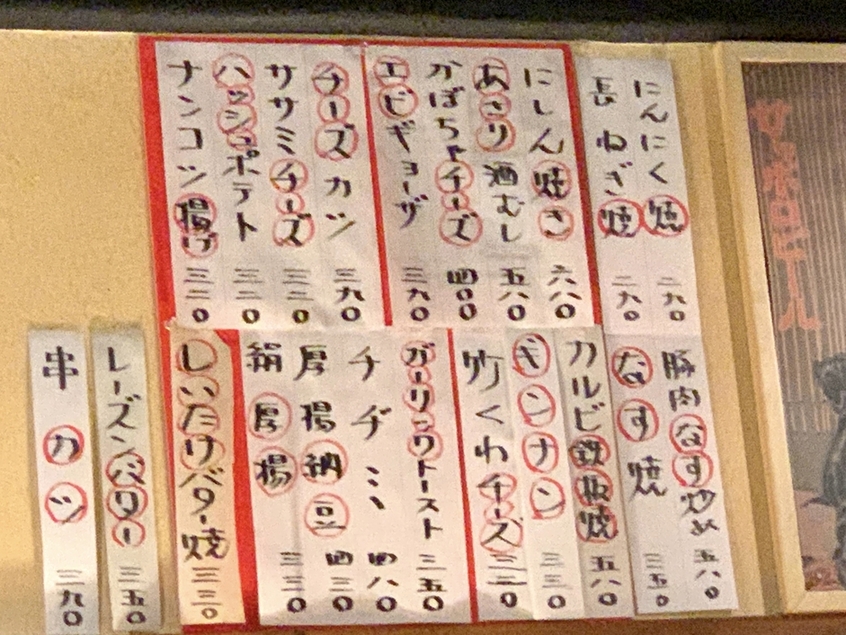 にんにく焼 二九〇
長ねぎ焼 二九〇
にしん焼き 六八〇
あさり酒むし 五八〇
かぼちゃチーズ 四〇〇
エビギョーザ 三九〇
チーズカツ 三九〇
ササミチーズ 三三〇
ハッシュポテト 三三〇
ナンコツ揚げ 三三〇
豚肉なす炒め 五八〇
なす焼 三五〇
カルビ鉄板焼 五八〇
ギンナン 三三〇
竹くわチーズ 三三〇
ガーリックトースト 三五〇
チヂミ 四八〇
厚揚納豆 四三〇
絹厚揚 三三〇
しいたけバター焼 三三〇
レーズンバター 三五〇
串カツ 三九〇
サッポロビール